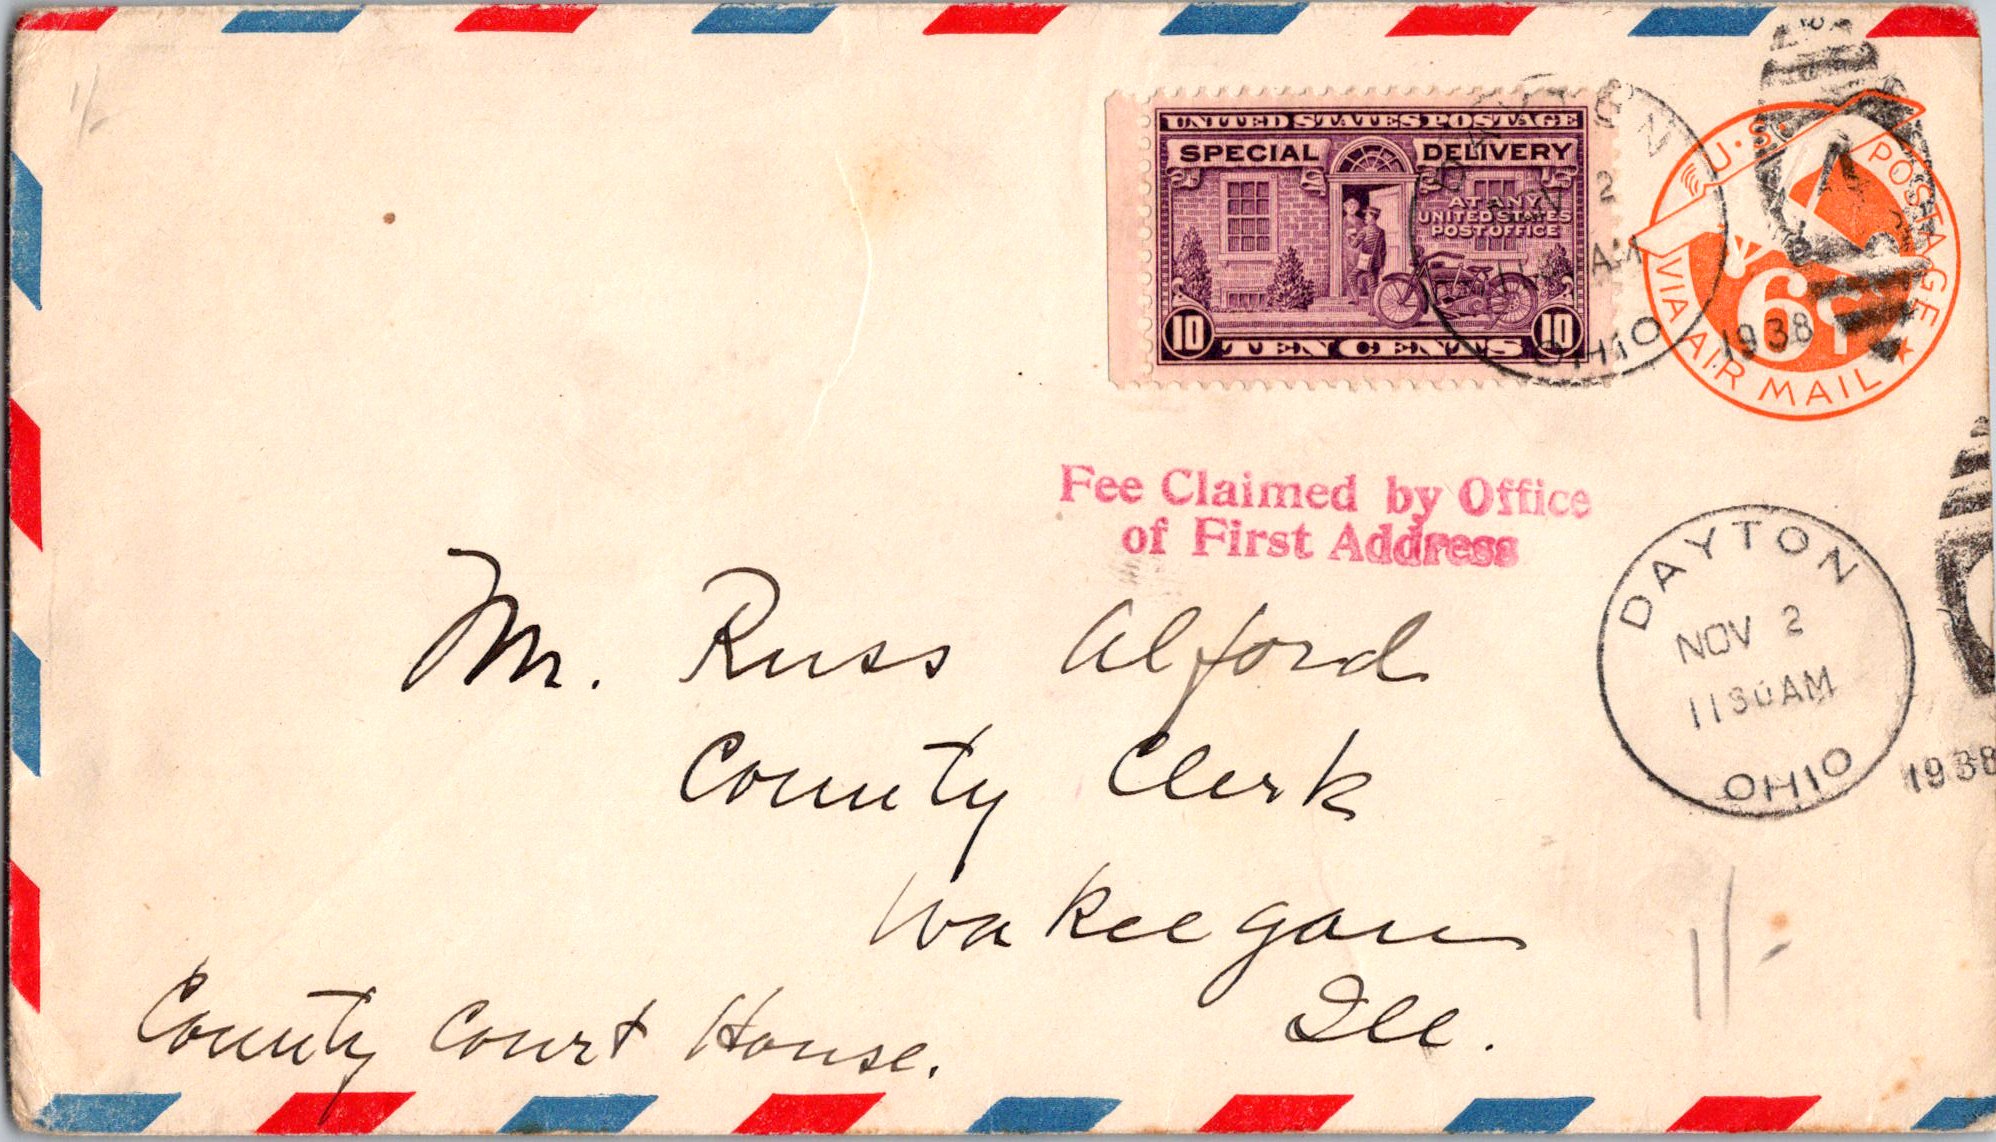 UNITED STATES POSTAGE
SPECIAL DELIVERY
AT ANY
UNITED STATES
POST OFFICE
10 TEN CENTS 10
OHIO
2
AM
1938
U.S. POSTAGE
6¢
VIA AIR MAIL
Fee Claimed by Office
of First Address
DAYTON
NOV 2
1130AM
OHIO
1938
Mr. Russ Alford
County Clerk
Wakeegan
Ill.
County Court House.